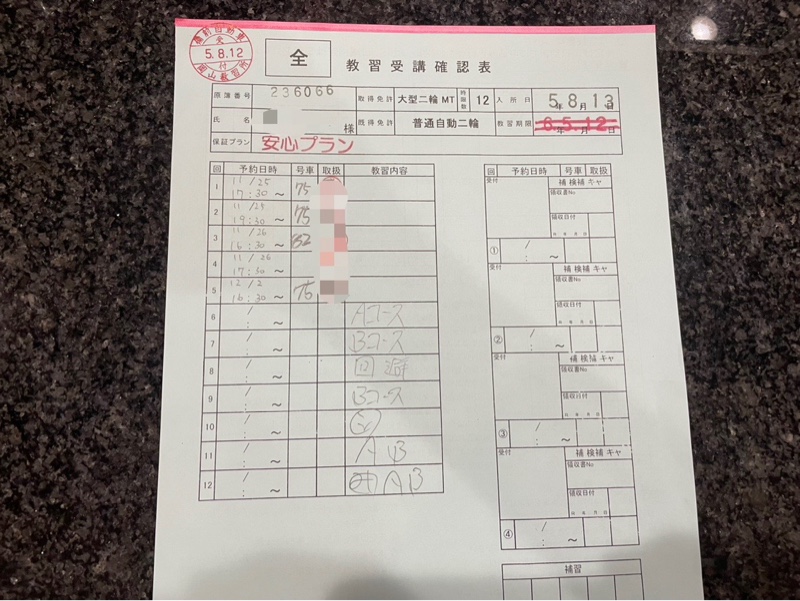 備前自動車
受
5.8.12
付
岡山教習所
全
教習受講確認表
原簿番号 236066 取得免許 大型二輪MT 時限数 12 入所日 5年8月13日
氏名 様 既得免許 普通自動二輪 教習期限 6.5.12 年 月 日
保証プラン 安心プラン
回 予約日時 号車 取扱 教習内容
1 11/25 17:30～ 75
2 11/25 19:30～ 75
3 11/26 16:30～
4 11/26 17:30～
5 12/2 16:30～ 75
6 / : ～ Aコース
7 / : ～ Bコース
8 / : ～ 回避
9 / : ～ Bコース
10 / : ～
11 / : ～ AB
12 / : ～ AB
回 予約日時 号車 取扱
受付 補 検補 キャ
領収書No
領収日付
年 月 日
① / : ～
受付 補 検補 キャ
領収書No
領収日付
年 月 日
② / : ～
受付 補 検補 キャ
領収書No
領収日付
年 月 日
③ / : ～
受付 補 検補 キャ
領収書No
領収日付
年 月 日
④ / : ～
補習